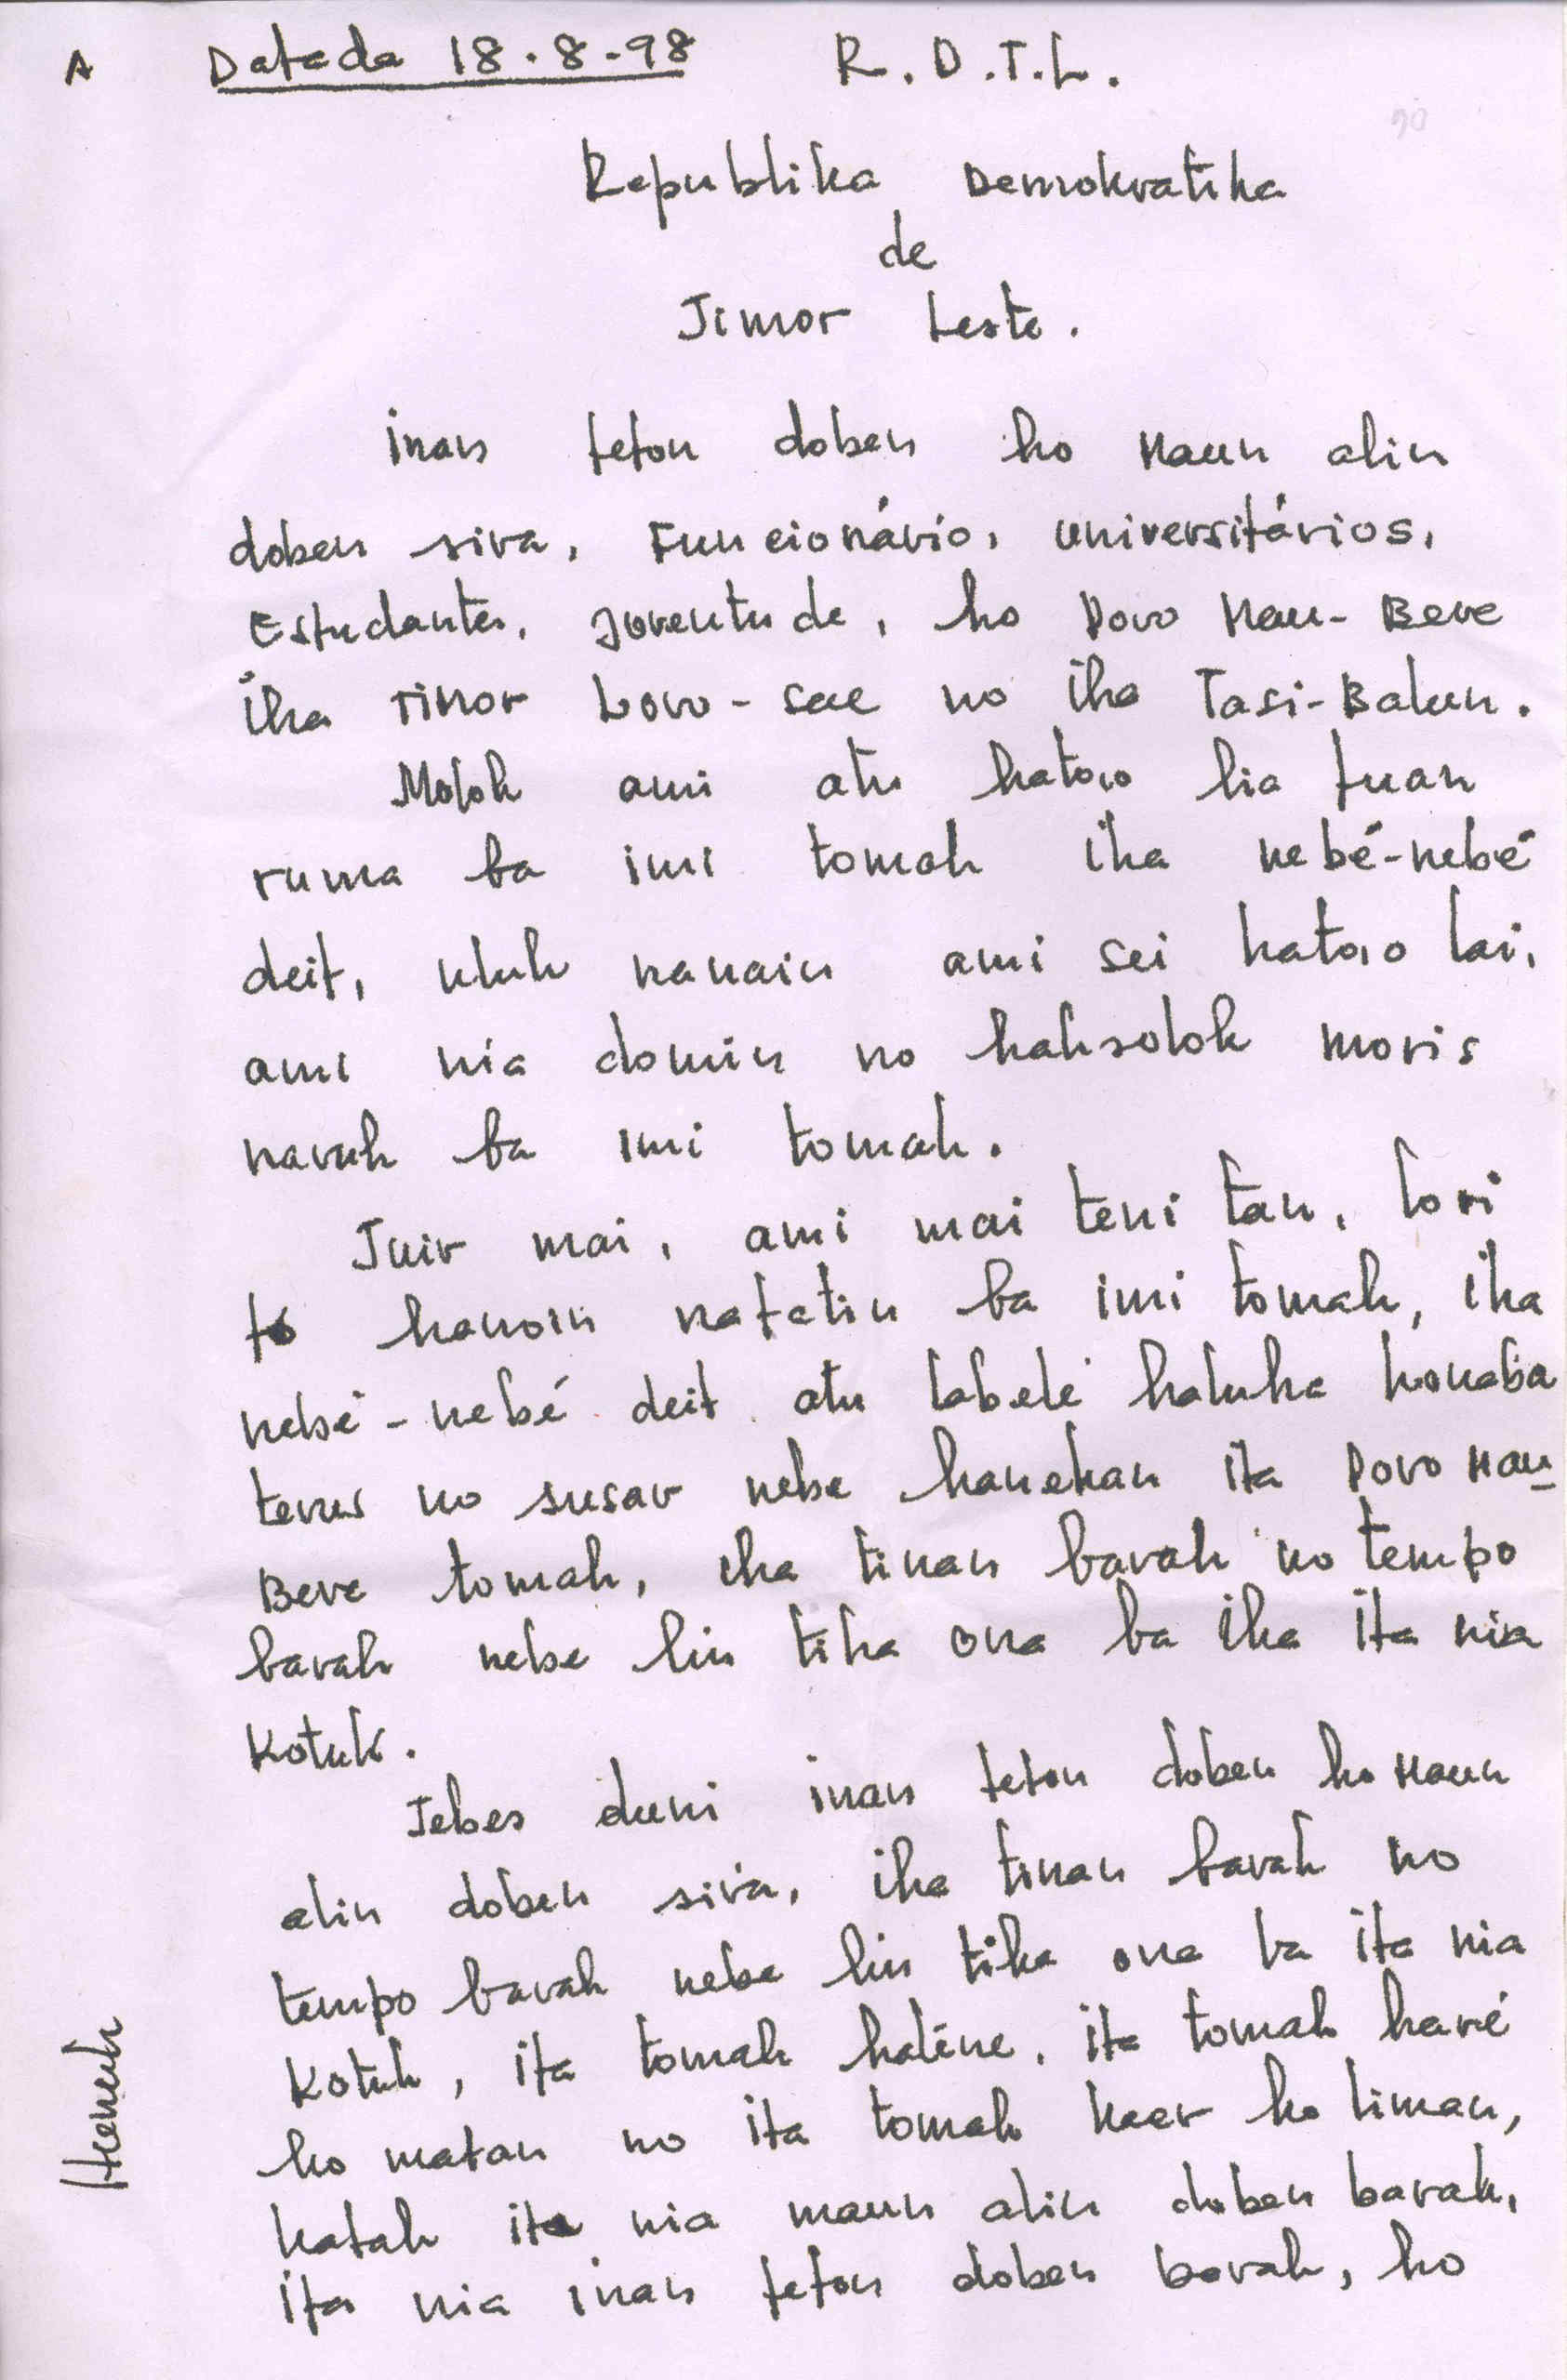 A Datada 18.8.98 R.D.T.L.
Republika Demokratika
de
Timor Leste.
Inan feton doben ho Maun alin
doben sira, Funcionário, universitários,
Estudantes, Joventude, ho Povo Mau-Bere
iha Timor Loro-sae no iha Tasi-Balun.
Molok ami atu hato'o lia fuan
ruma ba imi tomak iha nebé-nebé
deit, uluk nanain ami sei hato'o lai,
ami nia domin no haksolok moris
naruk ba imi tomak.
Tuir mai, ami mai teni tan, lori
to hanoin natetin ba imi tomak, iha
nebé-nebé deit atu labele haluha honaba
terus no susar nebe hanehan ita Povo Mau-
Bere tomak, iha tinan barak no tempo
barak nebe liu tiha ona ba iha ita nia
Kotuk.
Tebes duni inan feton doben ho Maun
alin doben sira, iha tinan barak no
tempo barak nebe liu tiha ona ba ita nia
Kotuk, ita tomak haténe, ita tomak haré
ho matan no ita tomak kaer ho liman,
katak ita nia maun alin doben barak,
ita nia inan feton doben barak, ho